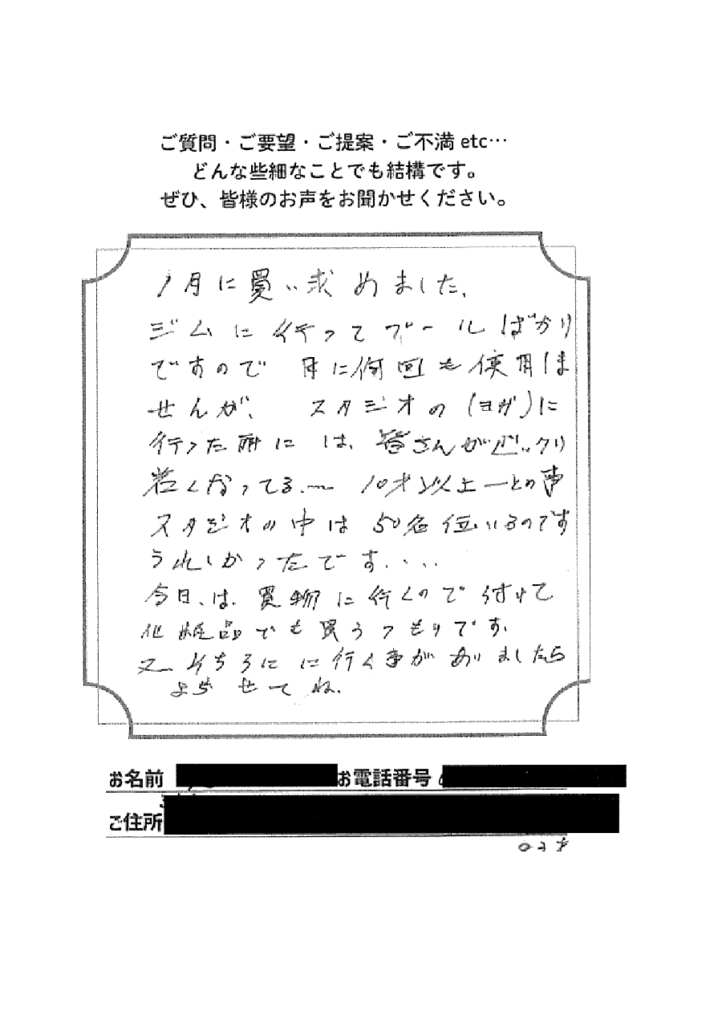 ご質問・ご要望・ご提案・ご不満 etc…
どんな些細なことでも結構です。
ぜひ、皆様のお声をお聞かせください。
1月に買い求めました、
ジムに行ってプールばかり
ですので 月に何回も使用しま
せんが、スタジオの(ヨガ)に
行った時には、皆さんがビックリ
若くなってる、〜 10才以上―との事
スタジオの中は 50名位いるのです
うれしかったです....
今日、は、買物に行くので付けて
化粧品でも買うつもりです、
又 そちらに に行く事がありましたら
よらせてね、
お名前 お電話番号
ご住所